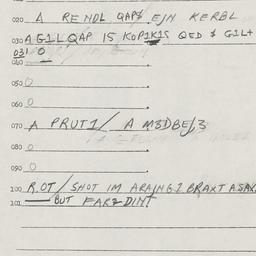 020 A RENDL QAP$ EJN KERBL
030 A G1L QAP IS KOP1K1S QED $ G1L+
031 O
040
050 O
060 O
070 A PRUT1/ A M3DBE/3
080 O
090 O
100 R.OT/ SHOT IM ARAJNG1 BRAXT ASAX
101 BUT FARZDIN!